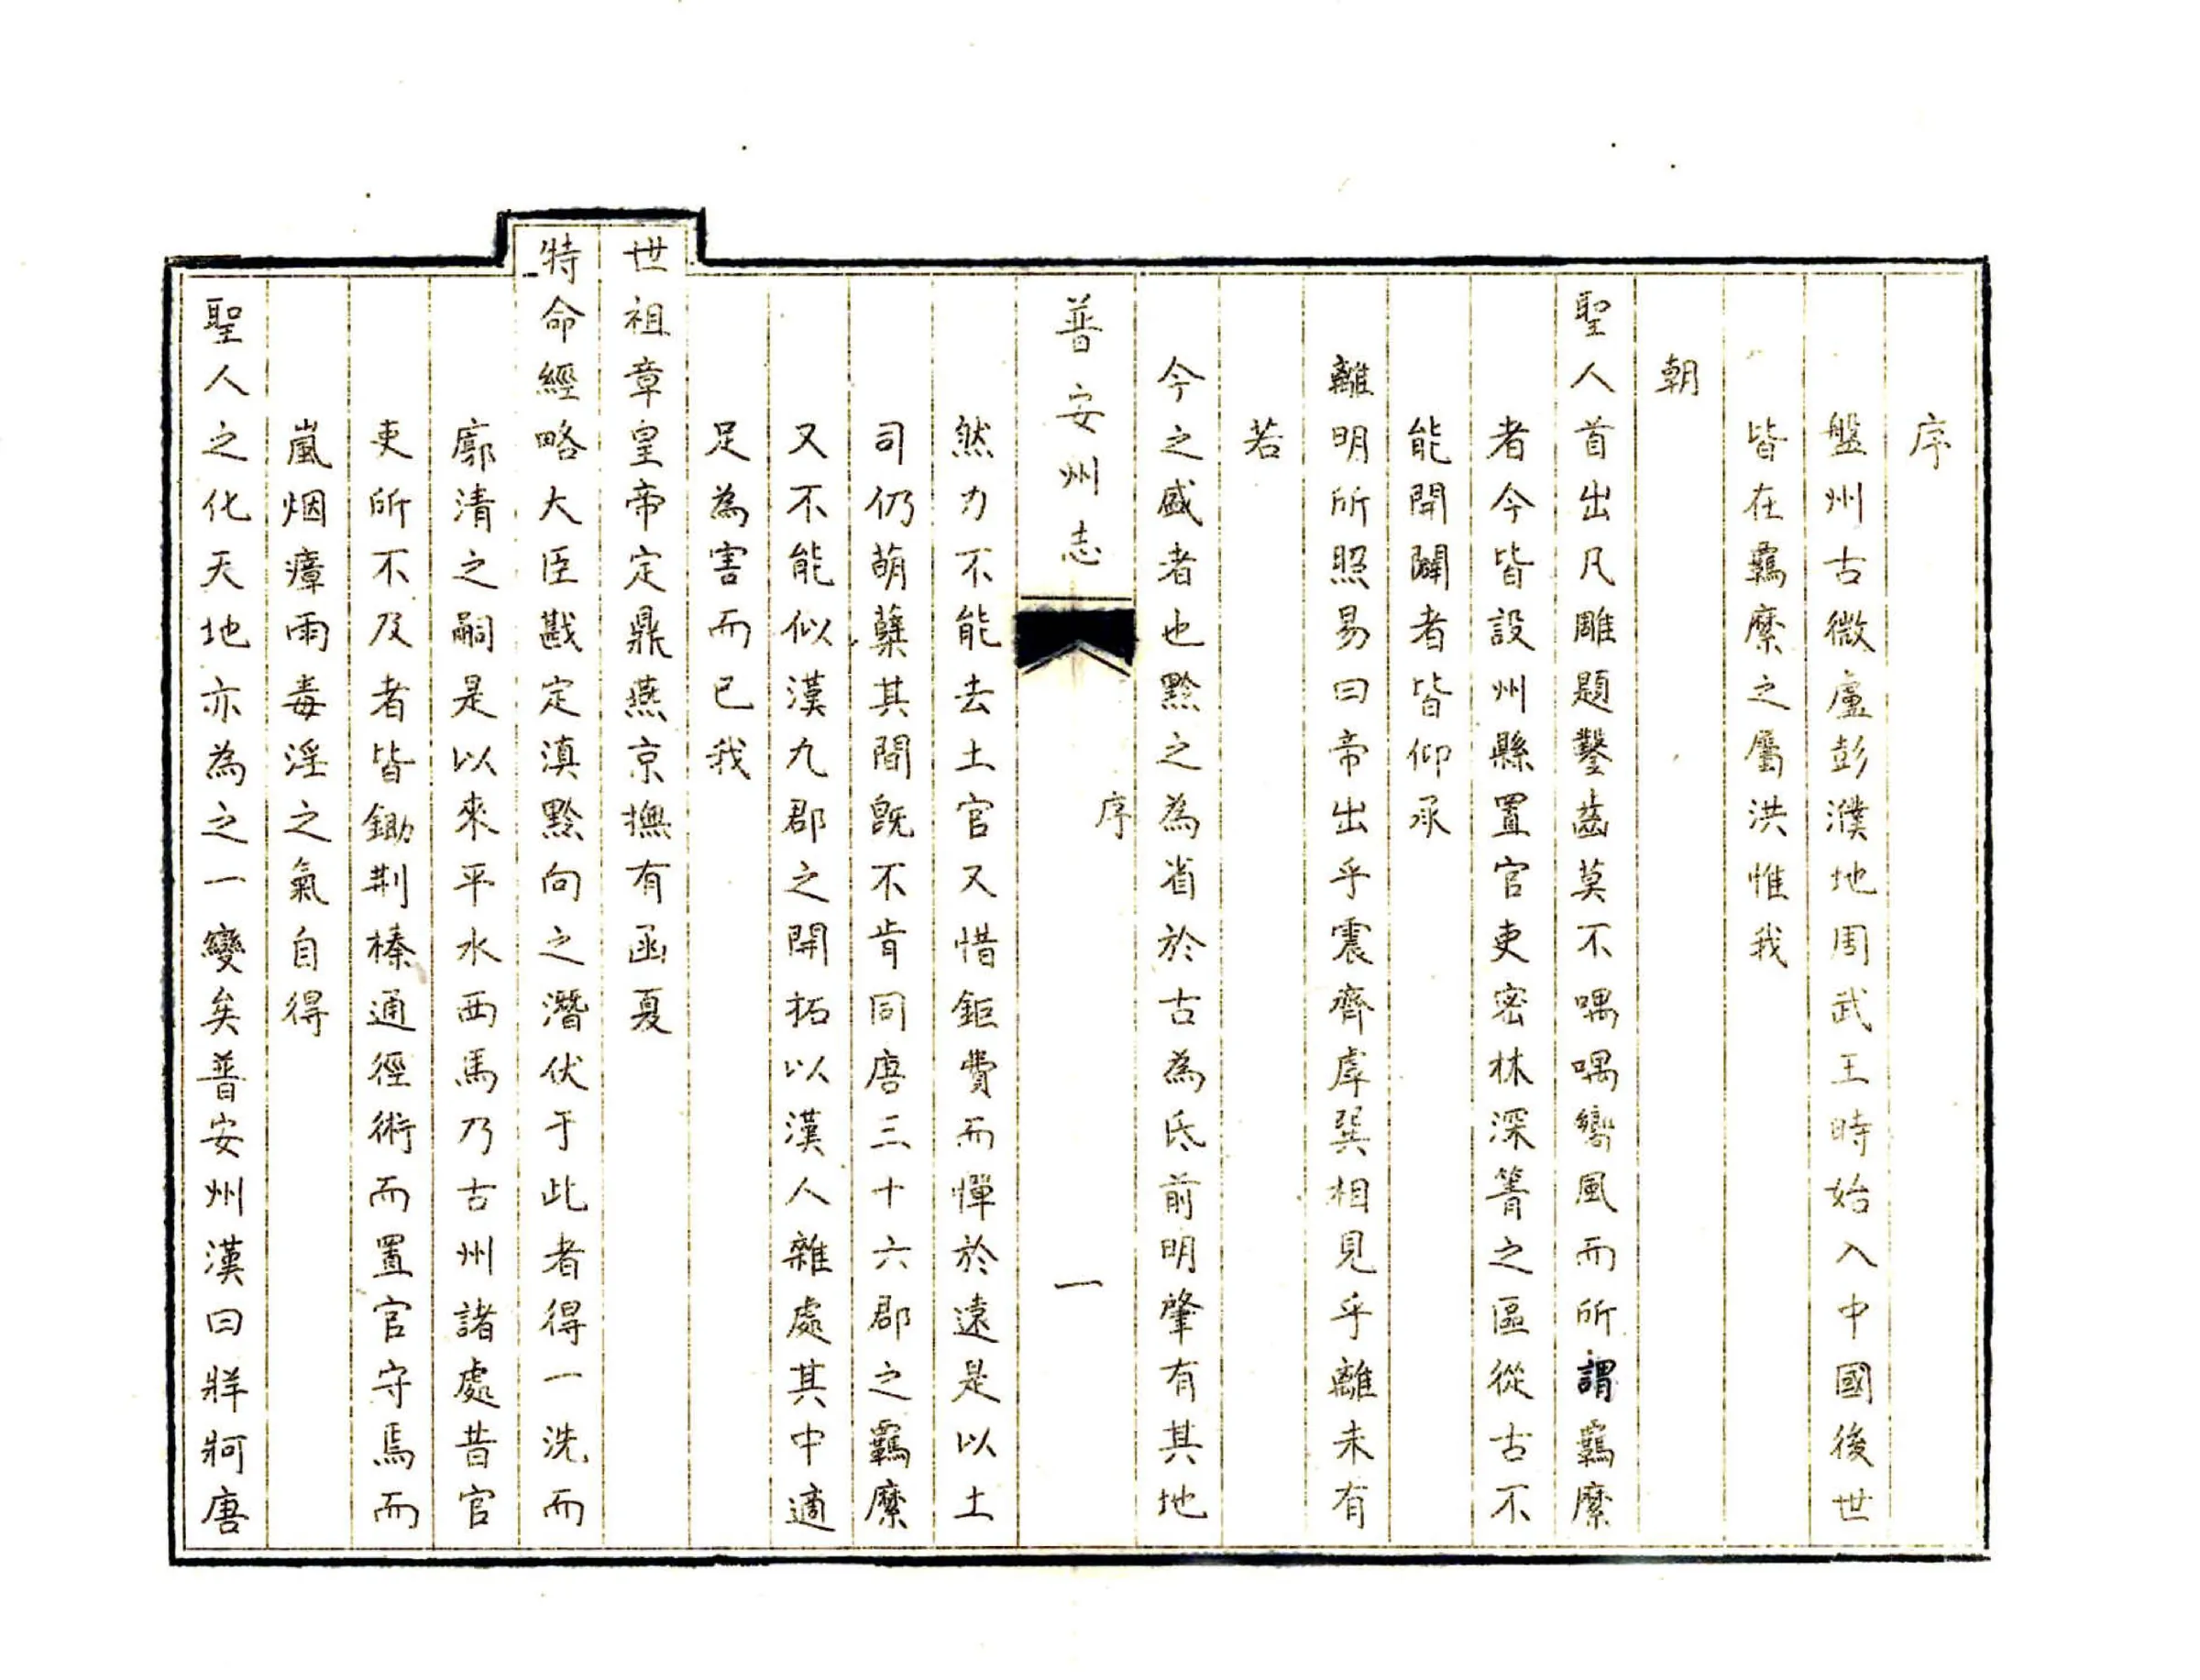 序
盤州古微盧彭濮地周武王時始入中國後世
皆在羈縻之屬洪惟我
朝
聖人首出凡雕題鑿齒莫不喁喁嚮風而所謂羈縻
者今皆設州縣置官吏密林深箐之區從古不
能開闢者皆仰承
離明所照易曰帝出乎震齊虖巽相見乎離未有
若
今之盛者也黔之為省於古為氐前明肇有其地
普安州志 序 一
然力不能去土官又惜鉅費而憚於遠是以土
司仍萌蘖其間旣不肯同唐三十六郡之羈縻
又不能似漢九郡之開拓以漢人雜處其中適
足為害而已我
世祖章皇帝定鼎燕京撫有函夏
特命經略大臣戡定滇黔向之潛伏于此者得一洗而
廓清之嗣是以來平水西馬乃古州諸處昔官
吏所不及者皆鋤荆榛通徑術而置官守焉而
嵐烟瘴雨毒淫之氣自得
聖人之化天地亦為之一變矣普安州漢曰牂牁唐